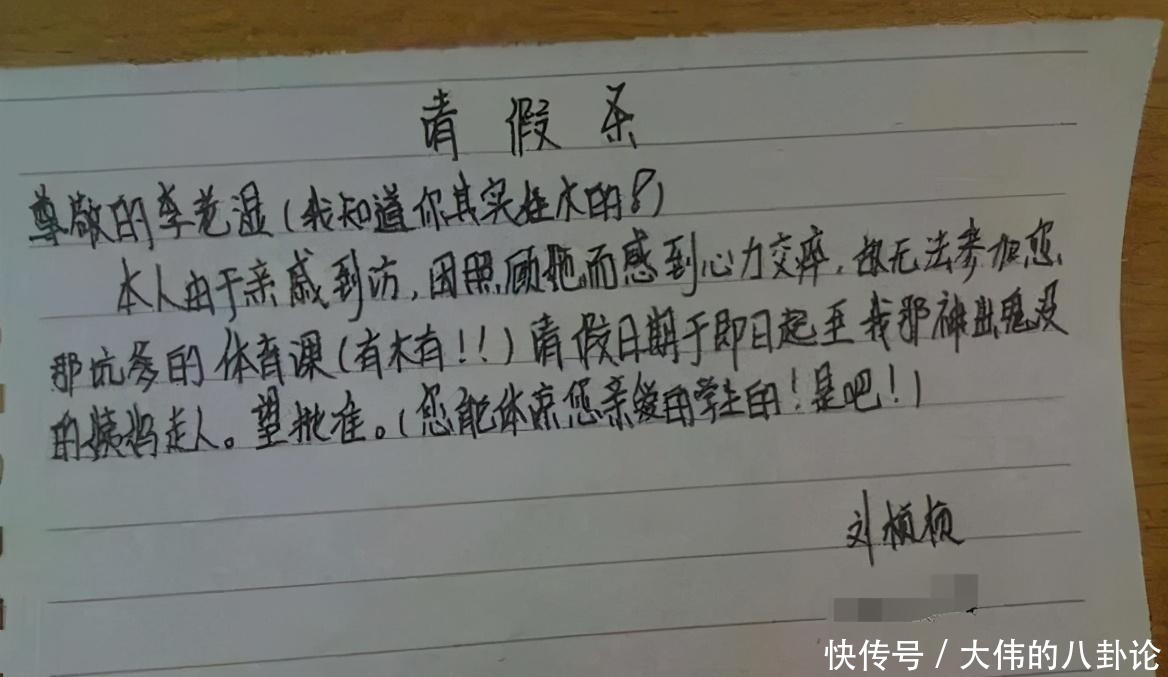 请假条
尊敬的李老湿(我知道你其实姓水的?)
本人由于亲戚到访,因照顾她而感到心力交瘁,故无法参加您
那坑爹的体育课(有木有!!)请假日期于即日起至我那神出鬼没
的姨妈走人。望批准。(您能体谅您亲爱的学生的!是吧!)
刘桢桢
快传号/大伟的八卦论